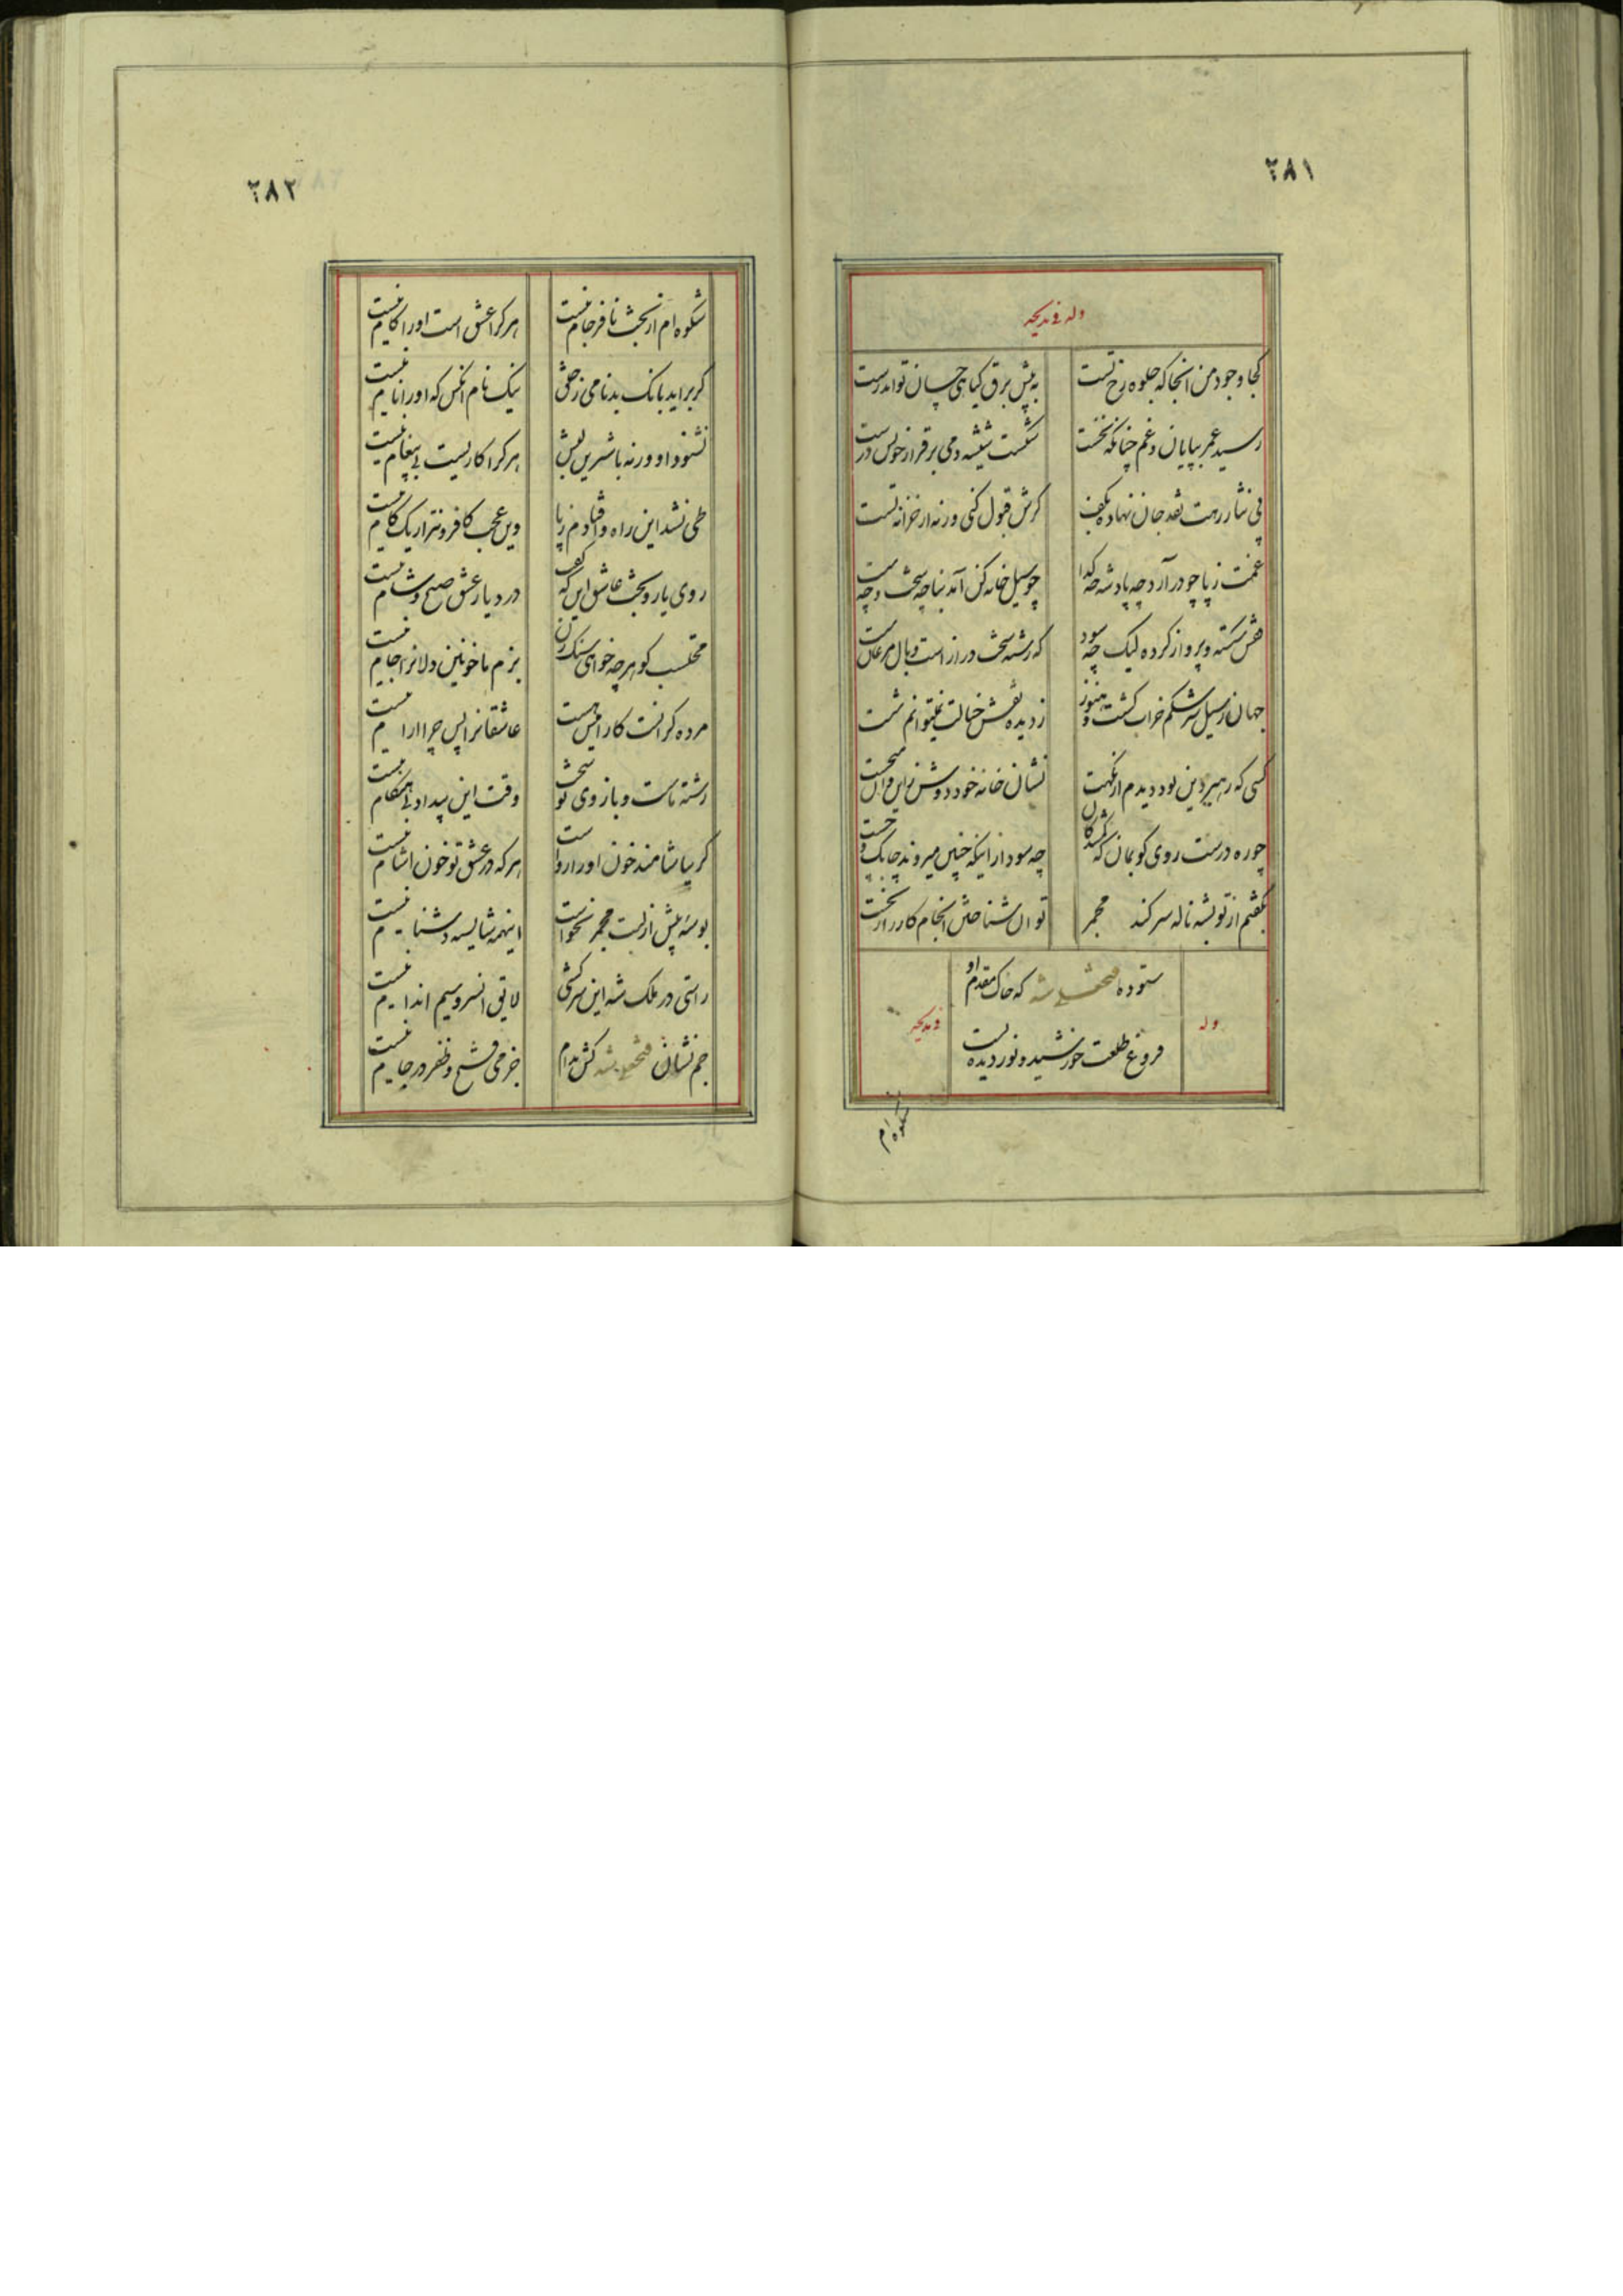 ۲۸۱
وله فی مدیحه
کجا وجود من انجا که جلوه رخ تست
به پیش برق کیاهی چسان تواند رست
رسید عمر بپایان و غم چنانکه نخست
شکست شیشه و می برقرار خویش درست
پی نثار رهت نقد جان نهاده بکف
کرش قبول کنی ورنه از خزانه تست
غمت ز پا چو در آرد چه پادشه چه کدا
چو سیل خانه کن آمد بنا چه سخت و چه سست
قفس شکسته و پرواز کرده لیک چه سود
که رشته سخت دراز است و بال مرغان سست
جهان ز سیل سرشکم خراب کشت و هنوز
ز دیده نقش خیالت نمیتوانم شست
کسی که رهبر دین بود دیدم از نکهت
نشان خانه خود دوش از این و آن میجست
چو ره درست روی کو بمان که کمشدکان
چه سود از اینکه چنین میروند چابک و چست
بکفتم از تو بشه ناله سر کند مجمر
توان شناختن انجام کار را ز نخست
ستوده فتحعلی شه که خاک مقدم او
فروغ طلعت خورشید و نور دیده
وله
فی مدیحه
شکوه ام
۲۸۲
شکوه ام از بخت نافرجام نیست
هر کرا عشق است او را کام نیست
کر براید بانک بدنامی ز خلق
نیک نام انکس که او را نام نیست
نشنود او ورنه با شیرین لبش
هر کرا کاریست بی پیغام نیست
طی نشد این راه و افتادم ز پا
وین عجب کافزونتر از یک کام نیست
روی یار و بخت عاشق این که کفت
در دیار عشق صبح و شام نیست
محتسب کو هر چه خواهی سنک زن
بزم ما خونین دلانرا جام نیست
مرده کر انست کارامیش هست
عاشقانرا پس چرا ارام نیست
رشته ما سست و بازوی تو سخت
وقت این بیداد بی هنکام نیست
کر بیاشامند خون او رواست
هر که در عشق تو خون اشام نیست
بوسه پیش از لبت مجمر نخواست
اینهمه شایسته دشنام نیست
راستی در ملک شه این سرکشی
لایق ان سرو سیم اندام نیست
جم نشان فتحعلی شه کش مدام
جز می فتح و ظفر در جام نیست